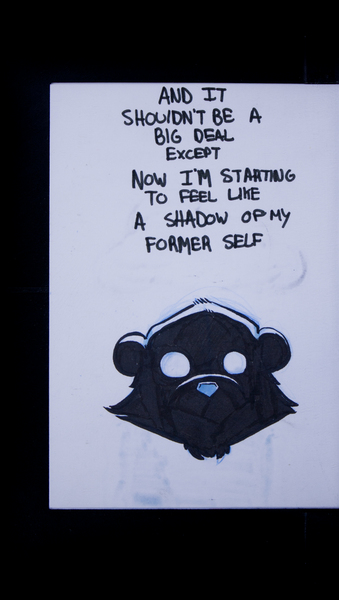 AND IT
SHOULDN'T BE A
BIG DEAL
EXCEPT
NOW I'M STARTING
TO FEEL LIKE
A SHADOW OF MY
FORMER SELF